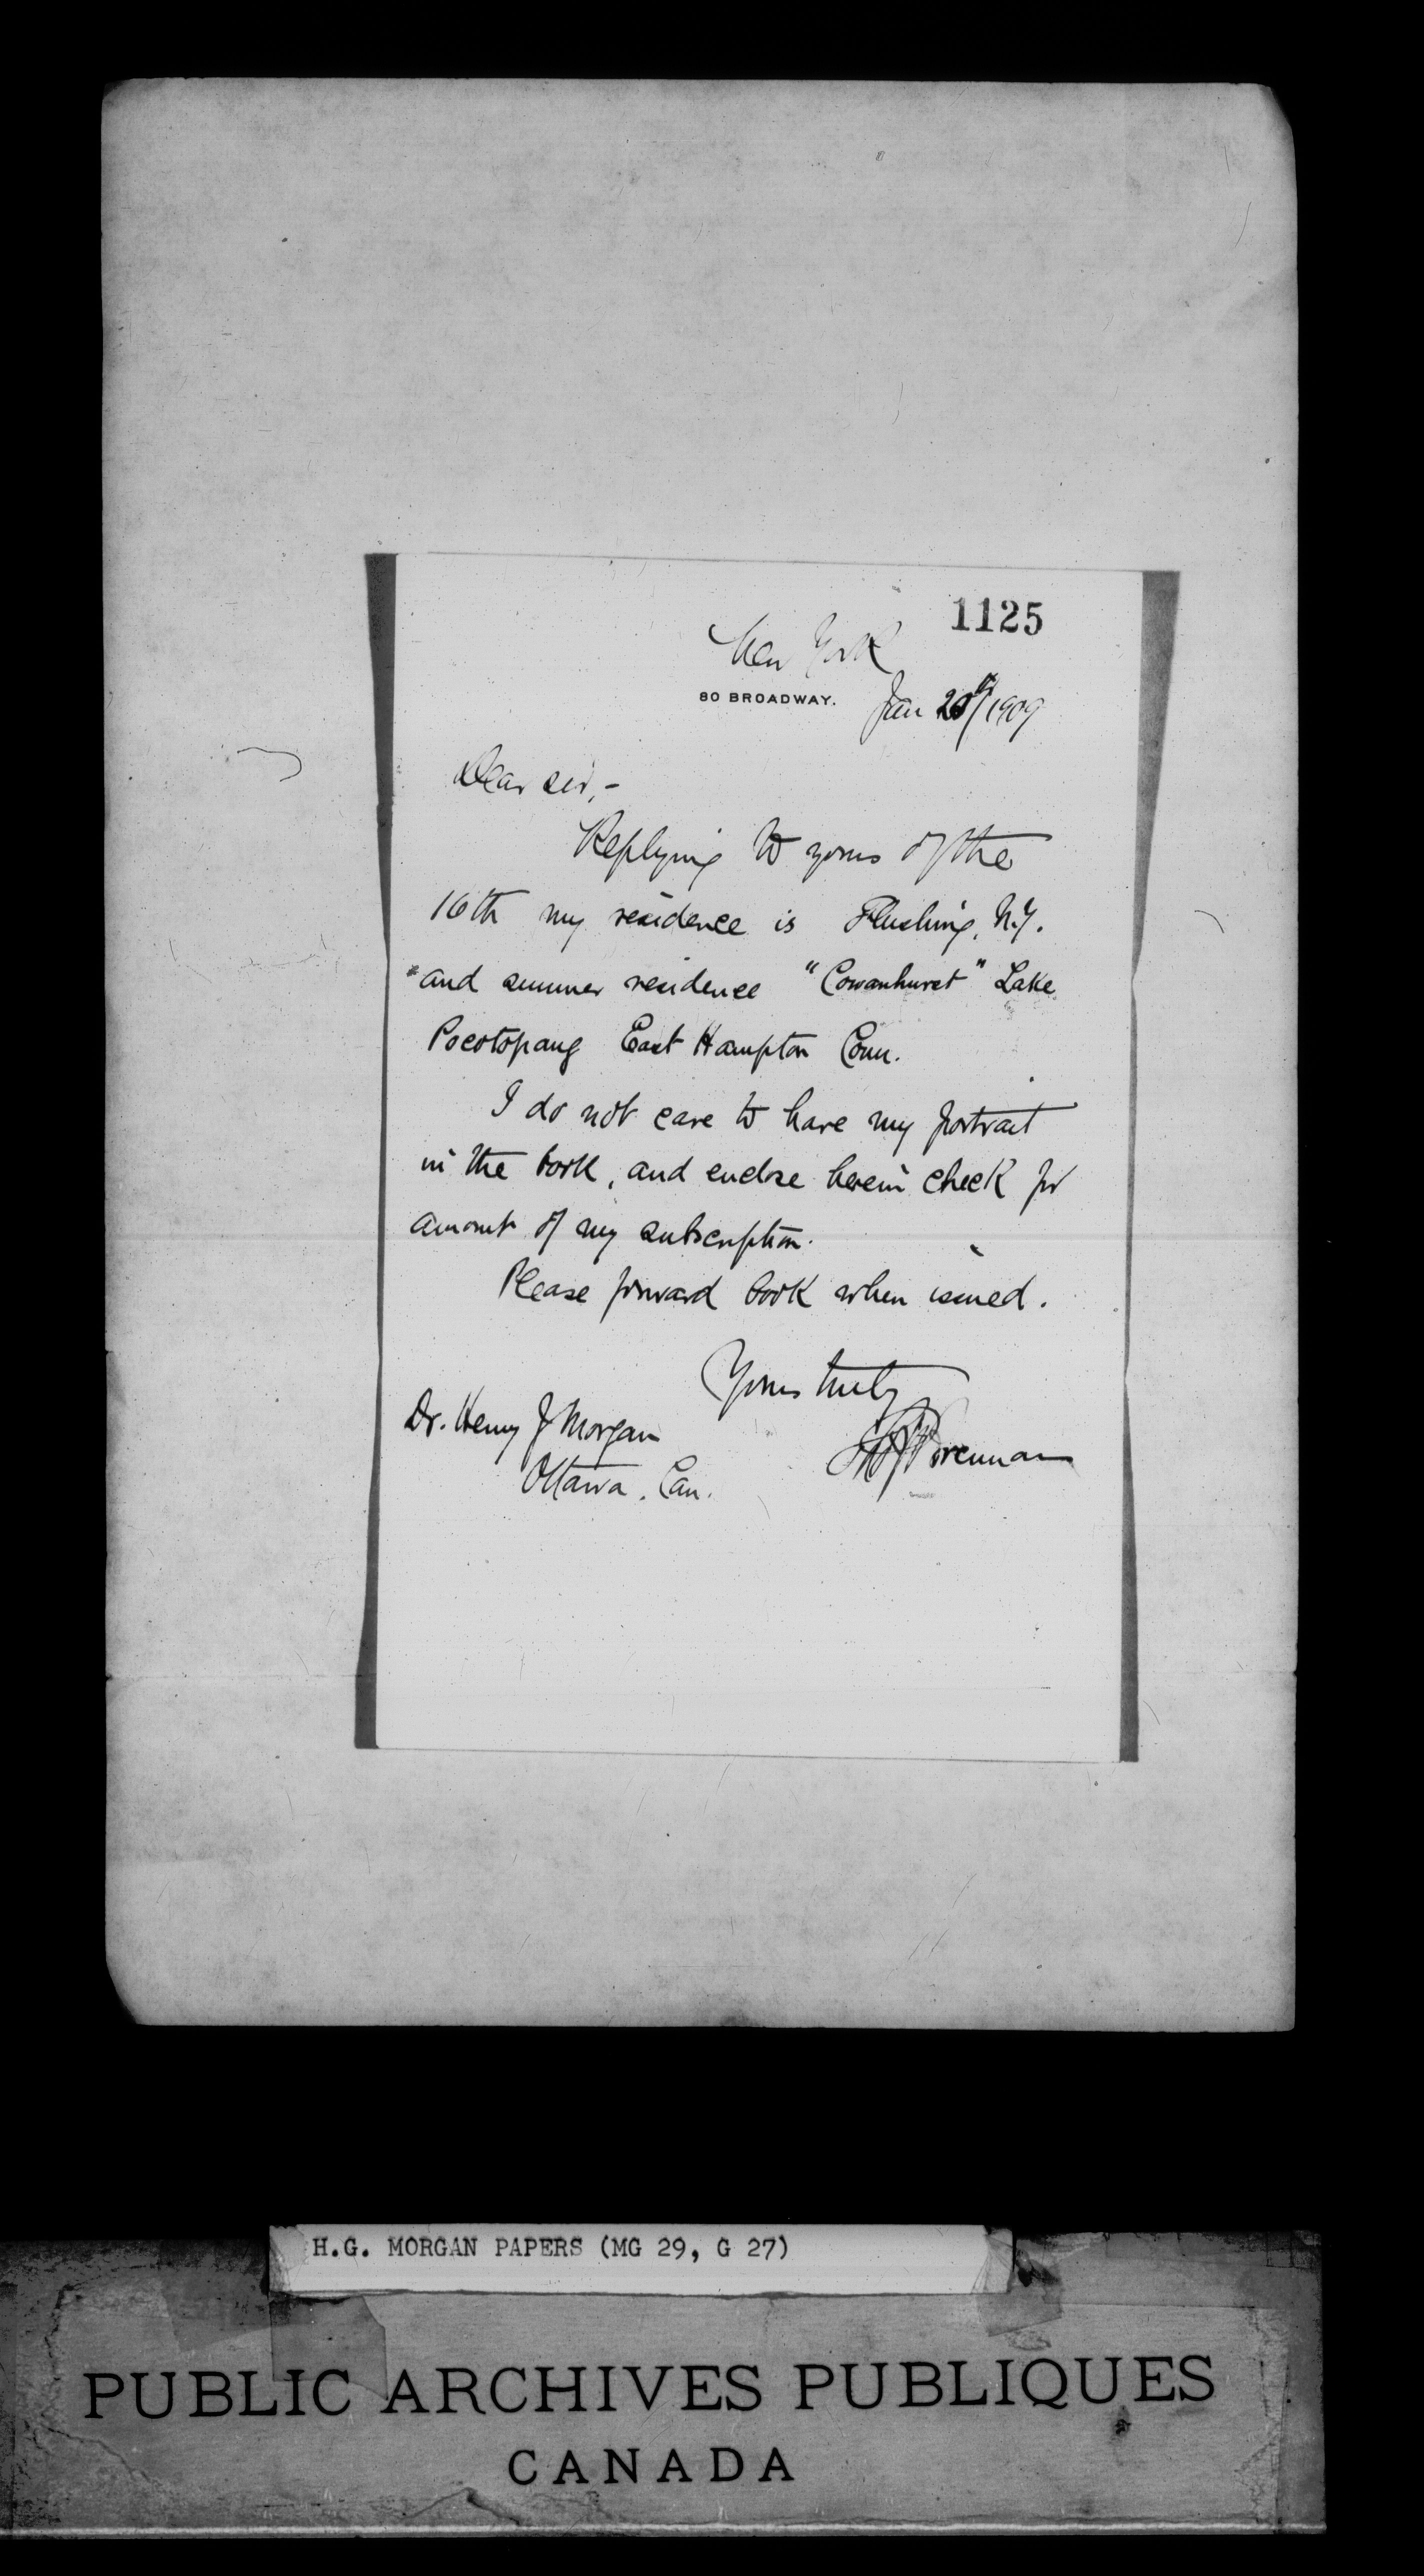 1125
New York
80 BROADWAY.
Jan 20th/1909
Dear Sir,-
Replying to yours of the
16th my residence is Flushing, N.Y.
and summer residence "Cowanhurst" Lake
Pocotopaug East Hampton Conn.
I do not care to have my portrait
in the book, and enclose herein check for
amount of my subscription.
Please forward book when issued.
Yours truly
Brennan
Dr. Henry J Morgan
Ottawa. Can.
H.G. MORGAN PAPERS (MG 29, G 27)
PUBLIC ARCHIVES PUBLIQUES
CANADA